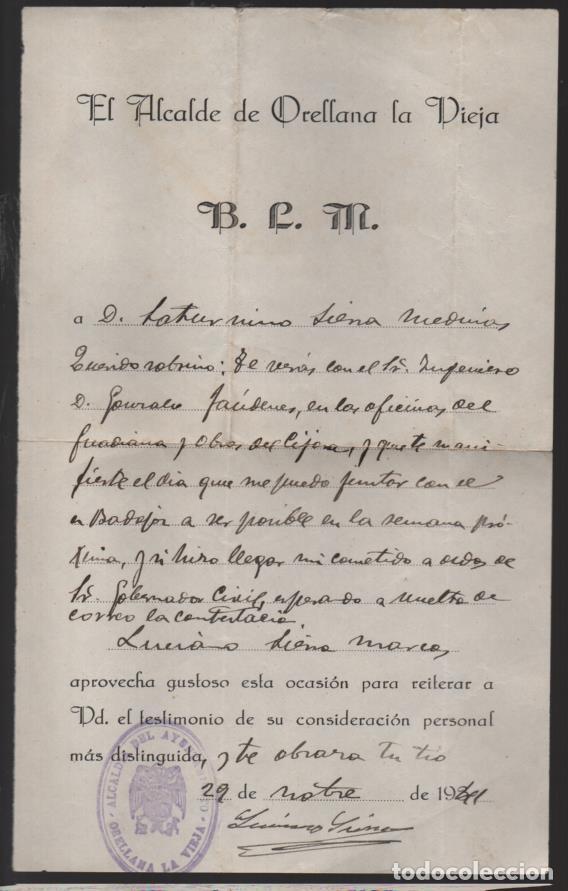 El Alcalde de Orellana la Vieja
B. L. M.
a D. Saturnino Sierra Medinas
Querido sobrino: Te verás con el Sr. Ingeniero
D. Gonzalo Jaúdenes, en las oficinas del
Guadiana y Obras del Cijara, y que te mani-
fieste el dia que me puedo juntar con el
en Badajoz a ser posible en la semana pró-
xima, y si hizo llegar mi cometido a oidos de
Sr. Gobernador Civil, esperando a vuelta de
correo la contestación.
Luciano Sierra Marcos
aprovecha gustoso esta ocasión para reiterar a
Vd. el testimonio de su consideración personal
más distinguida, y te abraza tu tio
29 de nobre de 1941
Luciano Sierra
ALCALDIA DEL AYUNTAMIENTO
ORELLANA LA VIEJA
todocoleccion
todocoleccion.net